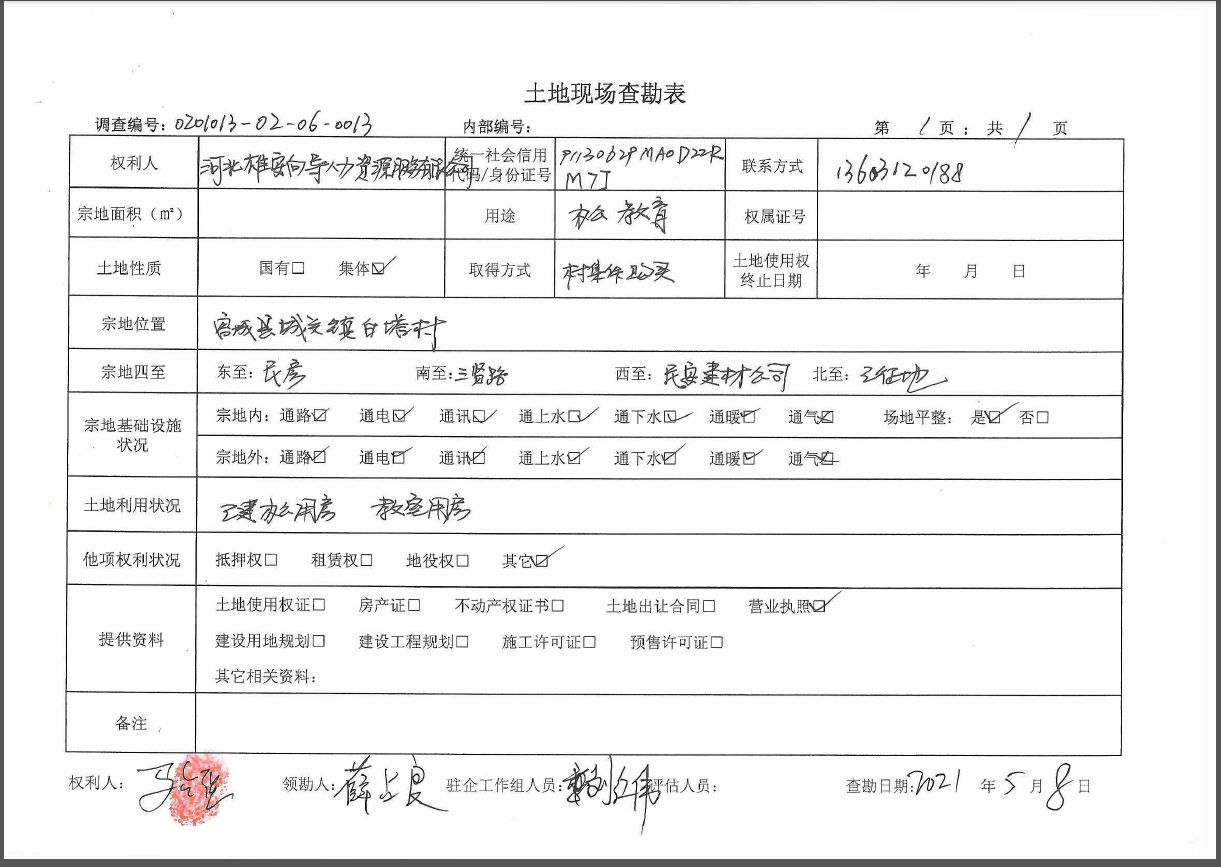 土地现场查勘表
调查编号：0201013-02-06-0013 内部编号： 第 1 页； 共 1 页
权利人 河北雄安向导人力资源服务有限公司 统一社会信用代码/身份证号 91130629MA0D22RM7J 联系方式 13603120188
宗地面积（㎡） 用途 办公 教育 权属证号
土地性质 国有□ 集体☑ 取得方式 村集体购买 土地使用权终止日期 年 月 日
宗地位置 容城县城关镇白塔村
宗地四至 东至：民房 南至：三贤路 西至：民安建材公司 北至：
宗地基础设施状况 宗地内：通路☑ 通电☑ 通讯☑ 通上水☑ 通下水☑ 通暖☑ 通气☑ 场地平整： 是☑ 否□
宗地外：通路☑ 通电☑ 通讯☑ 通上水☑ 通下水☑ 通暖☑ 通气☑
土地利用状况 已建办公用房 教室用房
他项权利状况 抵押权□ 租赁权□ 地役权□ 其它☑
提供资料 土地使用权证□ 房产证□ 不动产权证书□ 土地出让合同□ 营业执照☑
建设用地规划□ 建设工程规划□ 施工许可证□ 预售许可证□
其它相关资料：
备注
权利人： 领勘人： 薛 良 驻企工作组人员： 评估人员： 查勘日期：2021 年 5 月 8 日